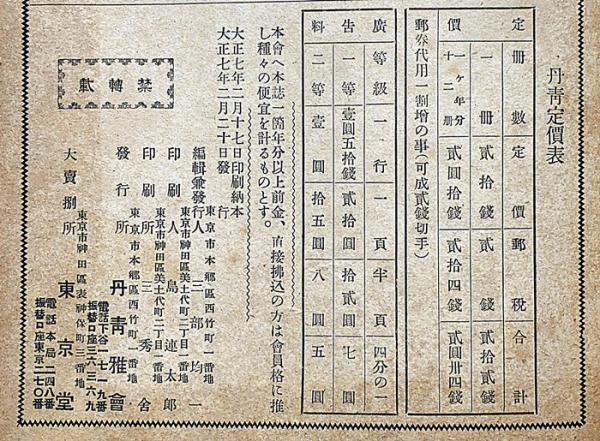 丹靑定價表
定價
冊數 定價 郵税 合計
一冊 貳拾錢 貳錢 貳拾貳錢
一ヶ年分十二冊 貳圓拾錢 貳拾四錢 貳圓卅四錢
郵券代用一割增の事(可成貳錢切手)
廣告料
等級 一行 一頁 半頁 四分の一
一等 壹圓五拾錢 貳拾圓 拾貳圓 七圓
二等 壹圓 拾五圓 八圓 五圓
本會へ本誌一箇年分以上前金、直接拂込の方は會員格に推
し種々の便宜を計るものとす。
大正七年二月十七日印刷納本
大正七年二月二十日發行
東京市本鄕區西竹町一番地
編輯兼發行人 三部均一
東京市神田區美土代町二丁目一番地
印刷人 島連太郎
東京市神田區美土代町二丁目一番地
印刷所 三秀舍
東京市本鄕區西竹町一番地
發行所 丹靑雅會
電話下谷一七一九番
振替口座三六三六九
東京市神田區表神保町三番地
大賣捌所 東京堂
電話本局二四八番
振替口座東京二七〇番
禁轉載